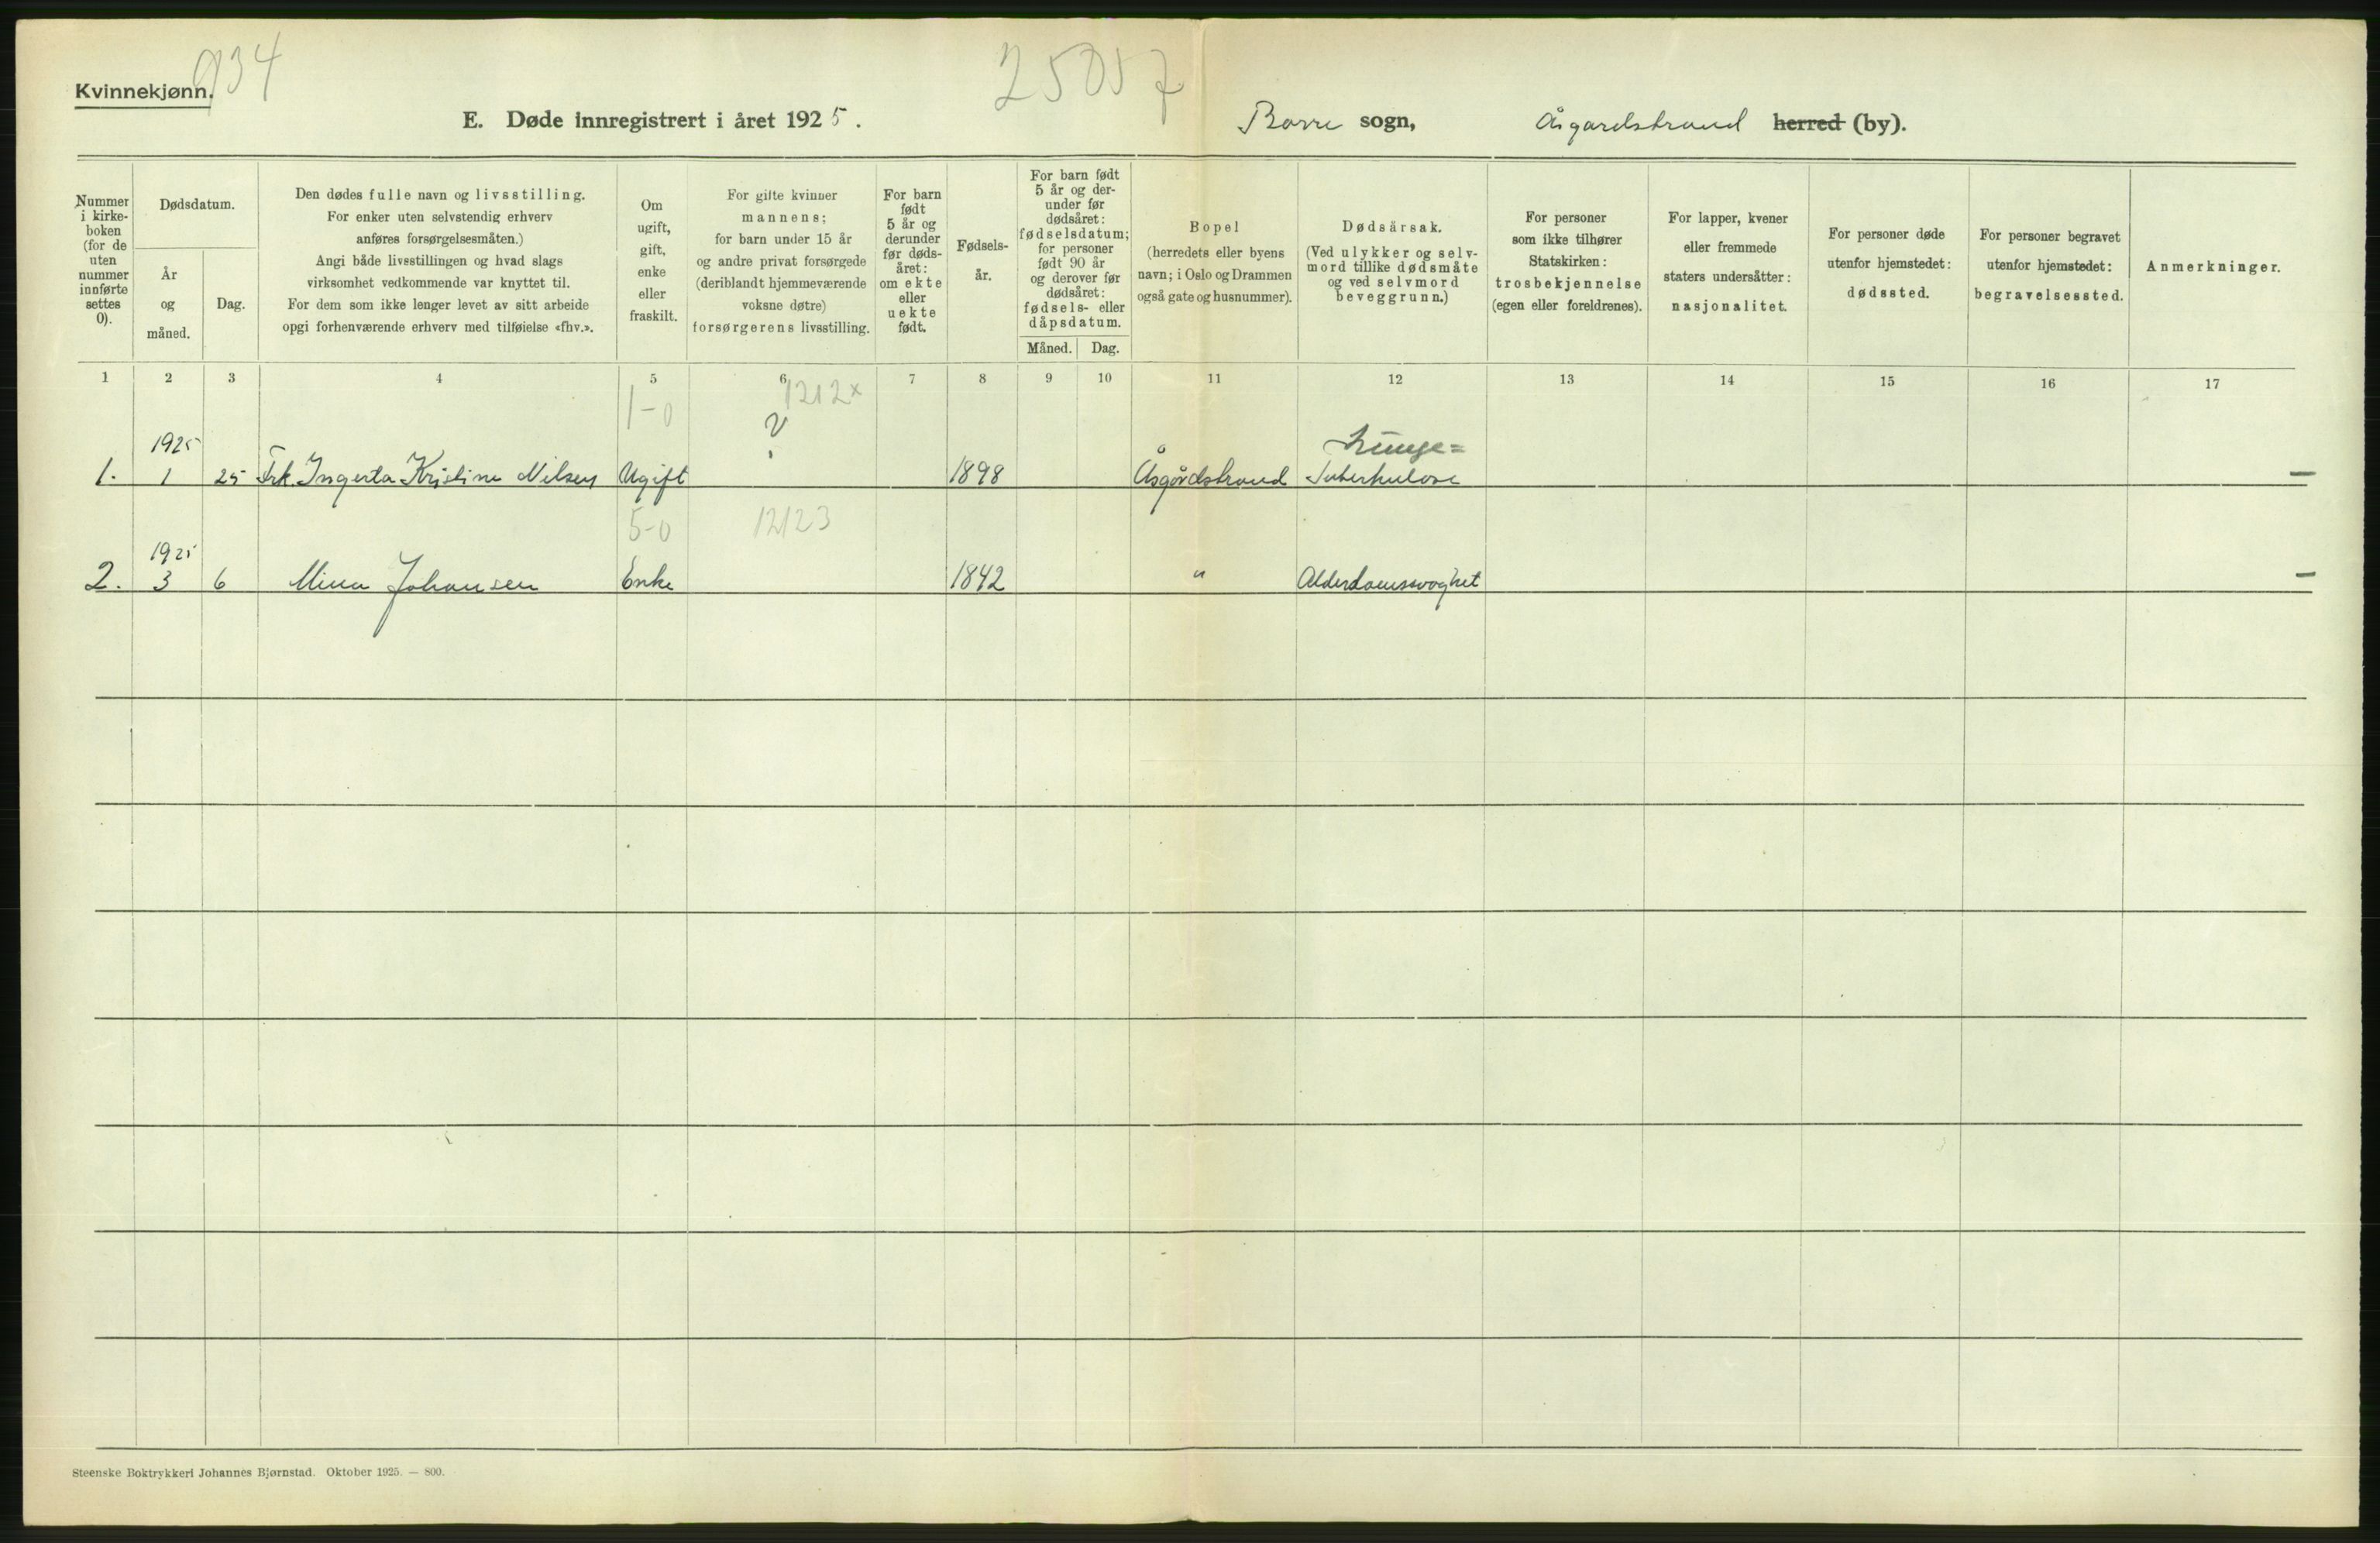 934
25057
Kvinnekjønn.
E. Døde innregistrert i året 1925.
Borre sogn,
Åsgardstrand herred (by).
Nummer
i kirke-
boken
(for de
uten
nummer
innførte
settes
0).
Dødsdatum.
År
og
måned.
Dag.
Den dødes fulle navn og livsstilling.
For enker uten selvstendig erhverv
anføres forsørgelsesmåten.)
Angi både livsstillingen og hvad slags
virksomhet vedkommende var knyttet til.
For dem som ikke lenger levet av sitt arbeide
opgi forhenværende erhverv med tilføielse «fhv.».
Om
ugift,
gift,
enke
eller
fraskilt.
For gifte kvinner
mannens;
for barn under 15 år
og andre privat forsørgede
(deriblandt hjemmeværende
voksne døtre)
forsørgerens livsstilling.
For barn
født
5 år og
derunder
før døds-
året:
om ekte
eller
uekte
født.
Fødsels-
år.
For barn født
5 år og der-
under før
dødsåret:
fødselsdatum;
for personer
født 90 år
og derover før
dødsåret:
fødsels- eller
dåpsdatum.
Måned. Dag.
Bopel
(herredets eller byens
navn; i Oslo og Drammen
også gate og husnummer).
Dødsårsak.
(Ved ulykker og selv-
mord tillike dødsmåte
og ved selvmord
beveggrunn.)
For personer
som ikke tilhører
Statskirken:
trosbekjennelse
(egen eller foreldrenes).
For lapper, kvener
eller fremmede
staters undersåtter:
nasjonalitet.
For personer døde
utenfor hjemstedet:
dødssted.
For personer begravet
utenfor hjemstedet:
begravelsessted.
Anmerkninger.
1 2 3 4 5 6 7 8 9 10 11 12 13 14 15 16 17
1-0 1212x
?
1925 Lunge=
1. 1 25 Frk. Ingerta Kristine Nilsen Ugift 1898 Åsgårdstrand Tuberkulose —
5-0 12123
1925
2. 3 6 Mina Johansen Enke 1842 " Alderdomssvaghet —
Steenske Boktrykkeri Johannes Bjørnstad. Oktober 1925. — 800.